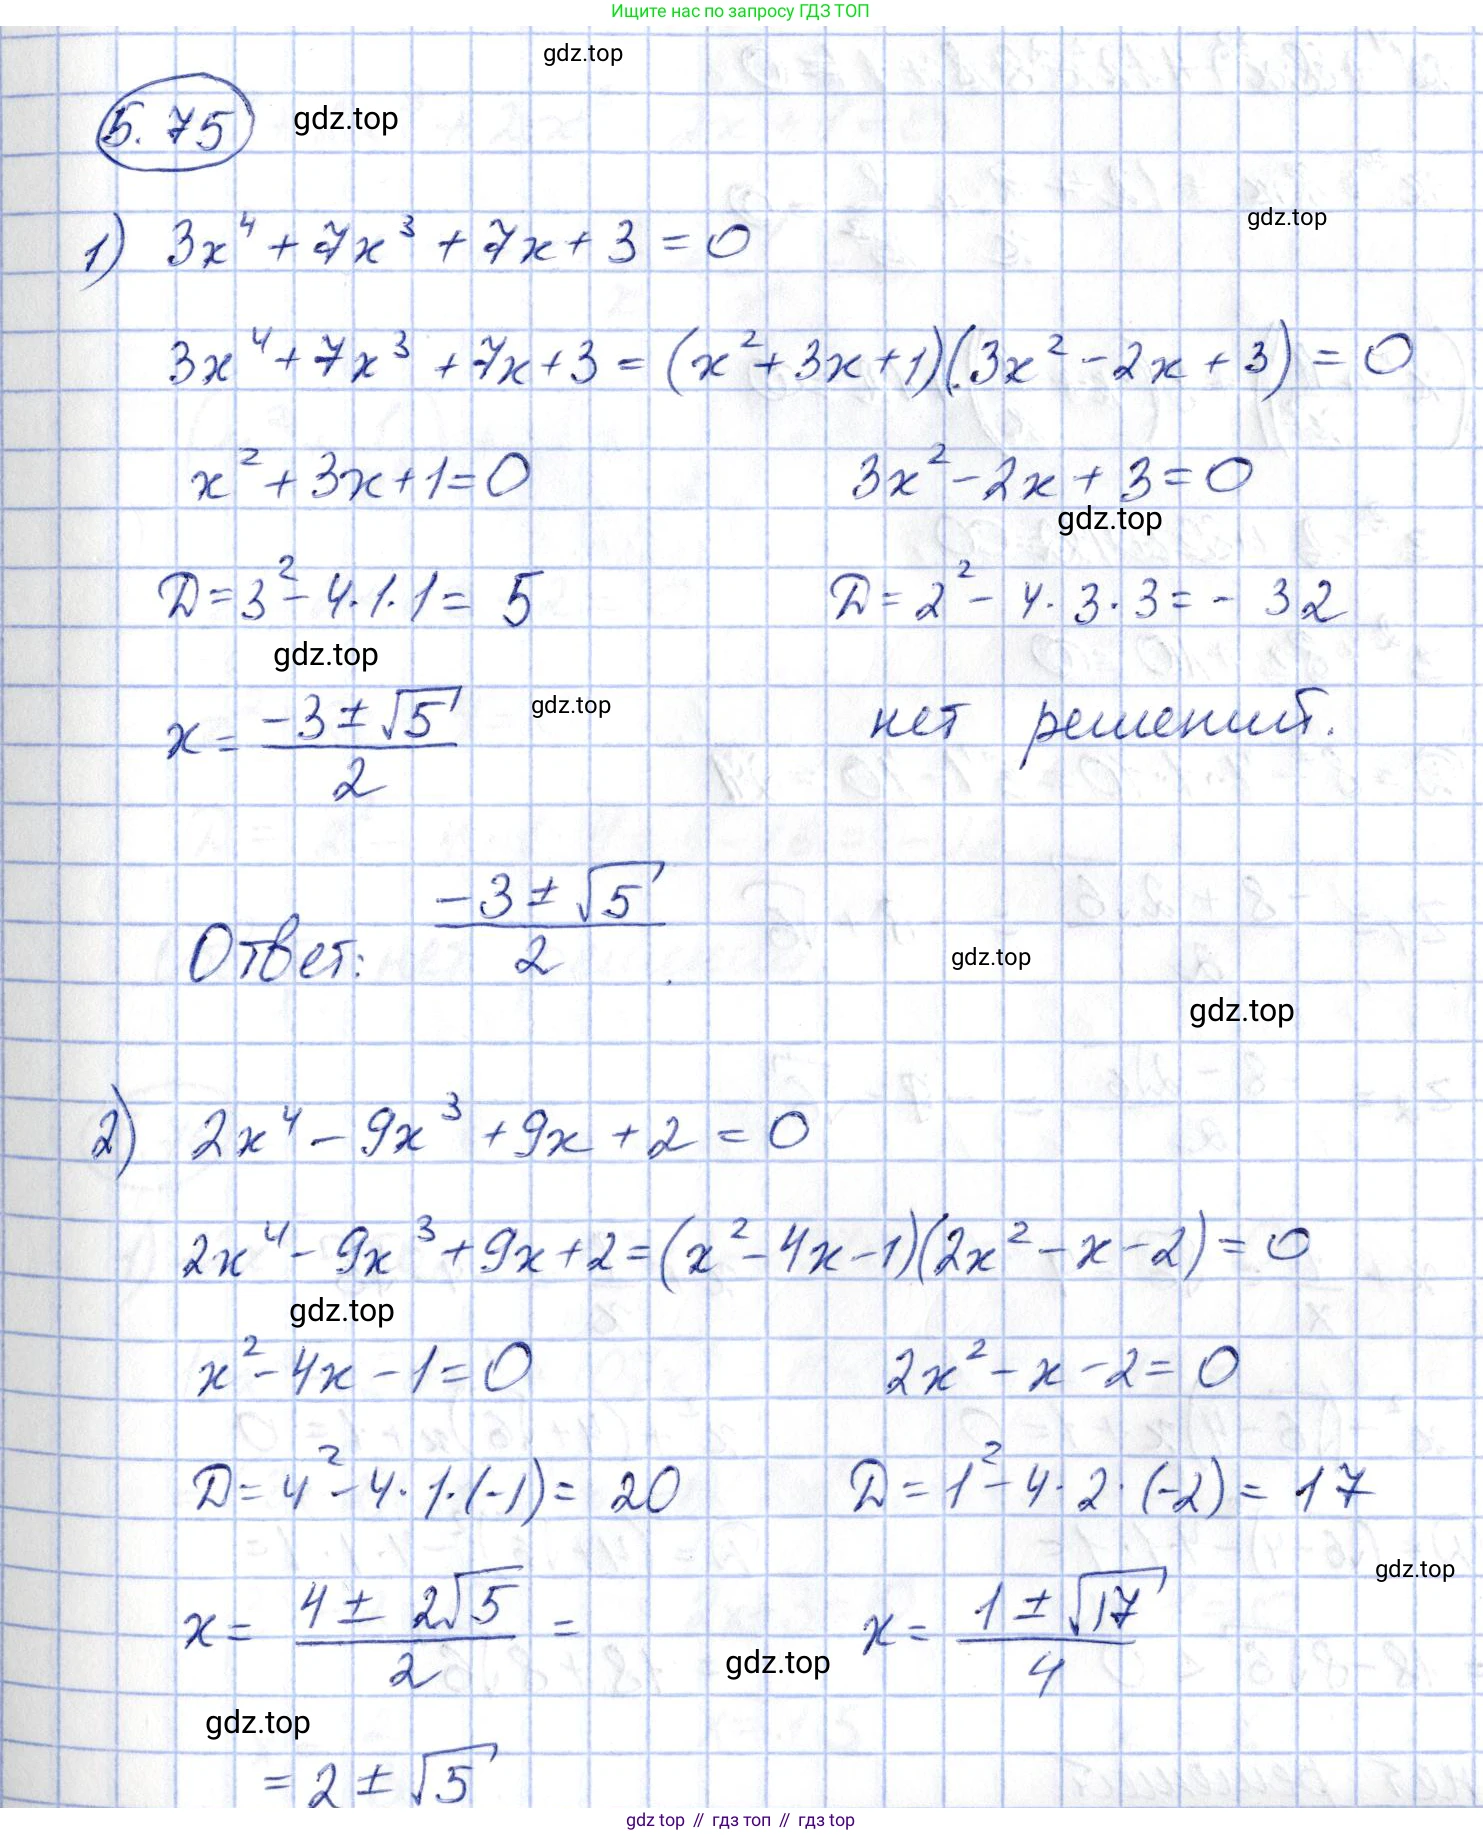 Ищите нас по запросу ГДЗ ТОП
gdz.top
5.75 gdz.top
gdz.top
1) 3x⁴ + 7x³ + 7x + 3 = 0
3x⁴ + 7x³ + 7x + 3 = (x² + 3x + 1)(3x² - 2x + 3) = 0
x² + 3x + 1 = 0    3x² - 2x + 3 = 0
gdz.top
D = 3² - 4·1·1 = 5    D = 2² - 4·3·3 = - 32
gdz.top
x = (-3 ± √5)/2    gdz.top    нет решений.
Ответ: (-3 ± √5)/2.
gdz.top
gdz.top
2) 2x⁴ - 9x³ + 9x + 2 = 0
2x⁴ - 9x³ + 9x + 2 = (x² - 4x - 1)(2x² - x - 2) = 0
gdz.top
x² - 4x - 1 = 0    2x² - x - 2 = 0
D = 4² - 4·1·(-1) = 20    D = 1² - 4·2·(-2) = 17
gdz.top
x = (4 ± 2√5)/2 =    x = (1 ± √17)/4
gdz.top
gdz.top
= 2 ± √5
gdz top // гдз топ // гдз.top